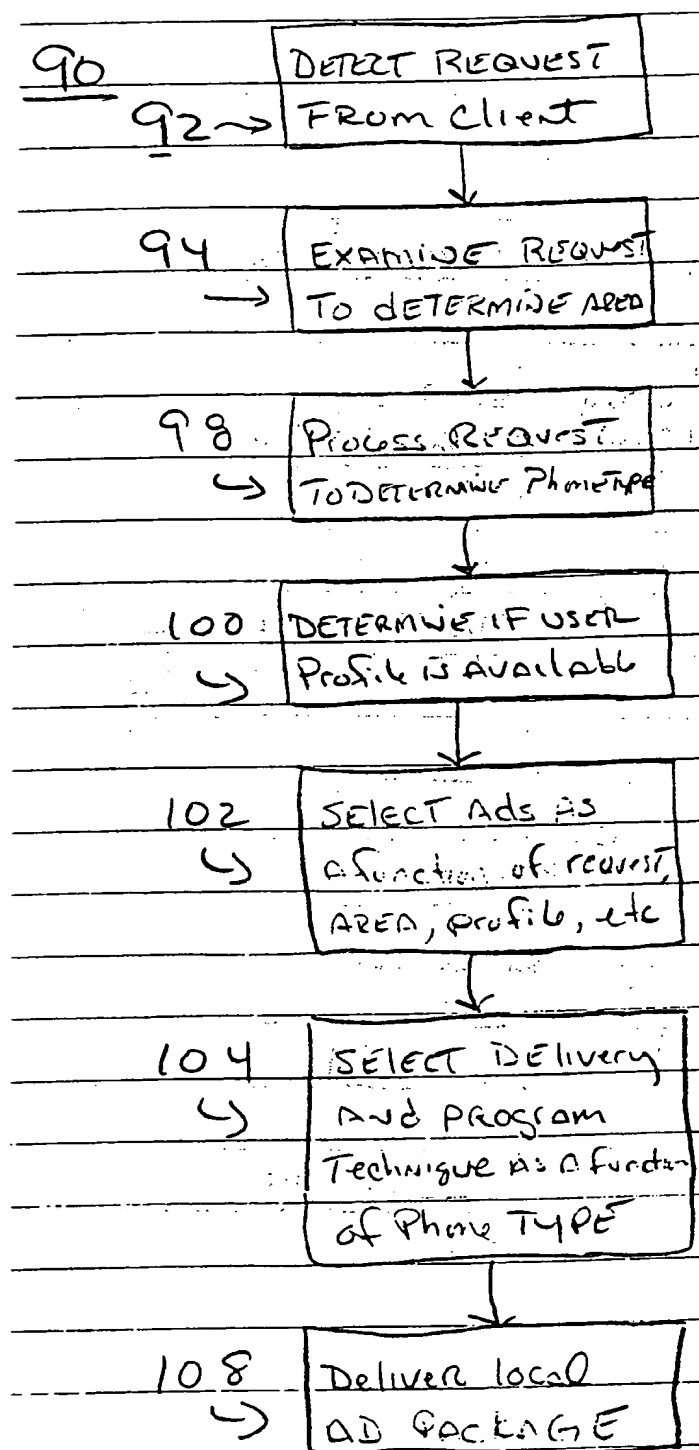 90
92 → DETECT REQUEST
From Client
94 EXAMINE REQUEST
TO dETERMINE AREA
98 Process REQUEST
TO DETERMINE PhoneType
100 DETERMINE IF USER
Profile is AVAilAble
102 SELECT Ads AS
A function of request,
AREA, profile, etc
104 SELECT DElivery
ANd PROgRAm
Technique As A function
of Phone TYPE
108 Deliver local
AD PACKAGE